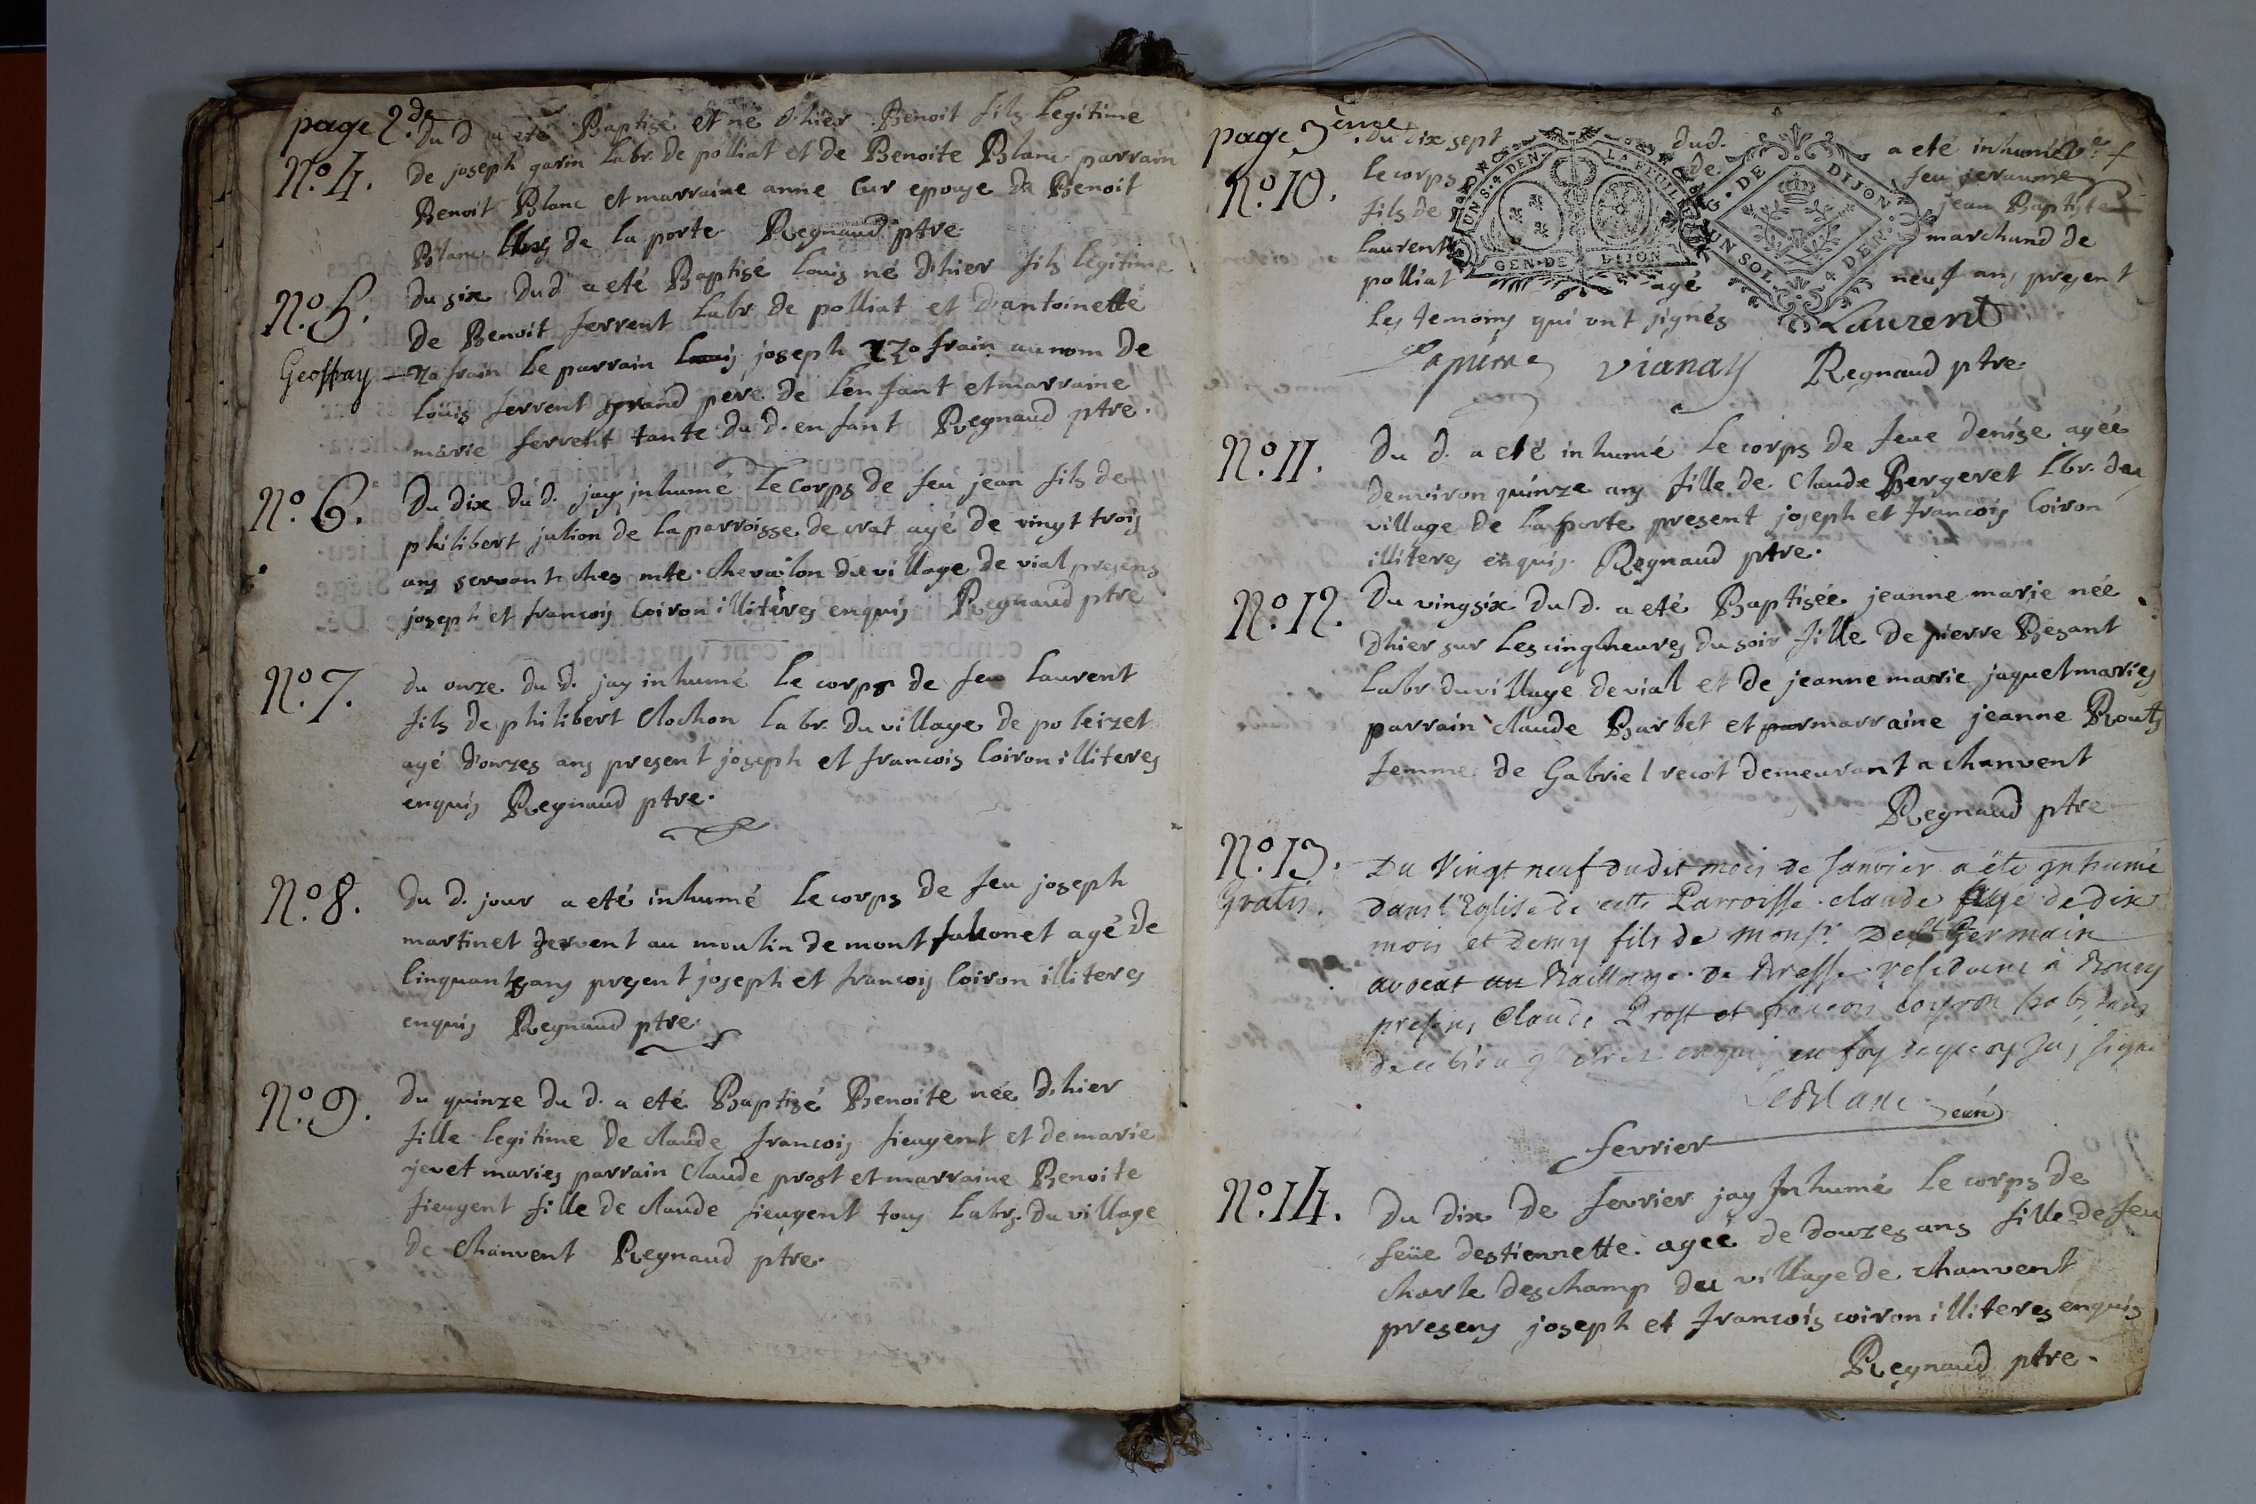 page 2.de
Du d a eté Baptisé et né d'hier Benoit fils legitime
N.o 4.
de joseph garin labr. de polliat et de Benoite Blanc parrain
Benoit Blanc et marraine anne Cur epouse de Benoit
Blanc de la porte Regnaud ptre.
N.o 5.
Du six du d a eté Baptisé Louis né d'hier fils legitime
de Benoit ferrent labr de polliat et d'antoinette
Geoffray
le parrain joseph au nom de
Loüis ferrent grand pere de l'enfant et marraine
marie ferrent tante du d. enfant Regnaud ptre.
N.o 6.
Du dix du d. jay jnhumé le Corps de feu jean fils de
philibert julion de la parroisse de crat agé de vingt trois
ans servant ches mte. chevalon du village de vial presens
joseph et francois Coiron illiteres enquis Regnaud ptre
N.o 7.
du onze du d. jay inhumé le corps de feu Laurent
fils de philibert Clochon labr. du village de poleizet
agé d'onzes ans present joseph et francois Coiron illiteres
enquis Regnaud ptre.
N.o 8.
du d. jour a eté inhumé le corps de feu joseph
martinet servent au moulin de mont falconet agé de
Cinquante ans present joseph et francois Coiron illiteres
enquis Regnaud ptre.
N.o 9.
du quinze du d. a eté Baptisé Benoite née d'hier
fille legitime de claude francois fieugent et de marie
jevet maries parrain Claude prost et marraine Benoite
fieugent fille de claude fieugent tous labrs. du village
de Chanvent Regnaud ptre.
page 3eme
du dix sept dud. a eté inhumé
N.o 10.
le corps de feu jeraume
fils de jean Baptiste
Laurent marchand de
polliat agé neuf ans present
GEN. DE DIJON
G. DE DIJON
UN SOL. 4 DER.
les temoins qui ont signés Laurent
Lapierre Vianay Regnaud ptre.
N.o 11.
Du d. a eté inhumé le corps de feue denise agée
denviron quinze ans fille de Claude Bergeret lbr. du
village de la porte present joseph et francois Coiron
illiteres enquis. Regnaud ptre.
N.o 12.
Du vingsix du d. a eté Baptisée jeanne marie née
d'hier sur les cinq heures du soir fille de pierre Besant
labr. du village de vial et de jeanne marie jaquet maries
parrain claude Barbet et marraine jeanne Routs
femme de Gabriel recot demeurant a chanvent
Regnaud ptre
N.o 13.
Du Vingt neuf dudit mois de Janvier a ete Inhumé
Gratis.
dans l'Eglise de cette Parroisse claude agé de dix
mois et demy fils de monsr. De St Germain
avocat au Bailliage de Bresse residant à Bourg
presens Claude Prost et françois coyron habitans
de ce lieu illiteres enquis en foy dequoy J'ay signé
LeBlanc curé
fevrier
N.o 14.
Du dix de fevrier jay Inhumé le corps de
feüe destiennette agée de douzes ans fille de feu
charle deschamp du village de chanvent
presens joseph et francois coiron illiteres enquis
Regnaud ptre.